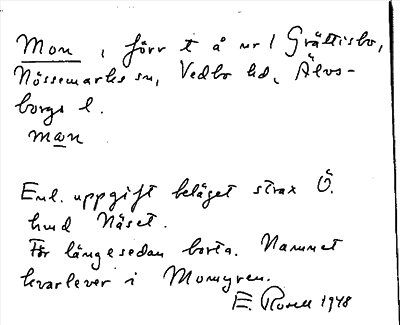 Mon, förr t å nr 1 Grättisbo,
Nössemarks sn, Vedbo hd, Älvs-
borgs l.
mɷn
Enl. uppgift beläget strax Ö.
hmd Näset.
För länge sedan borta. Namnet
kvarlever i Momyren.
E. Rosell 1948